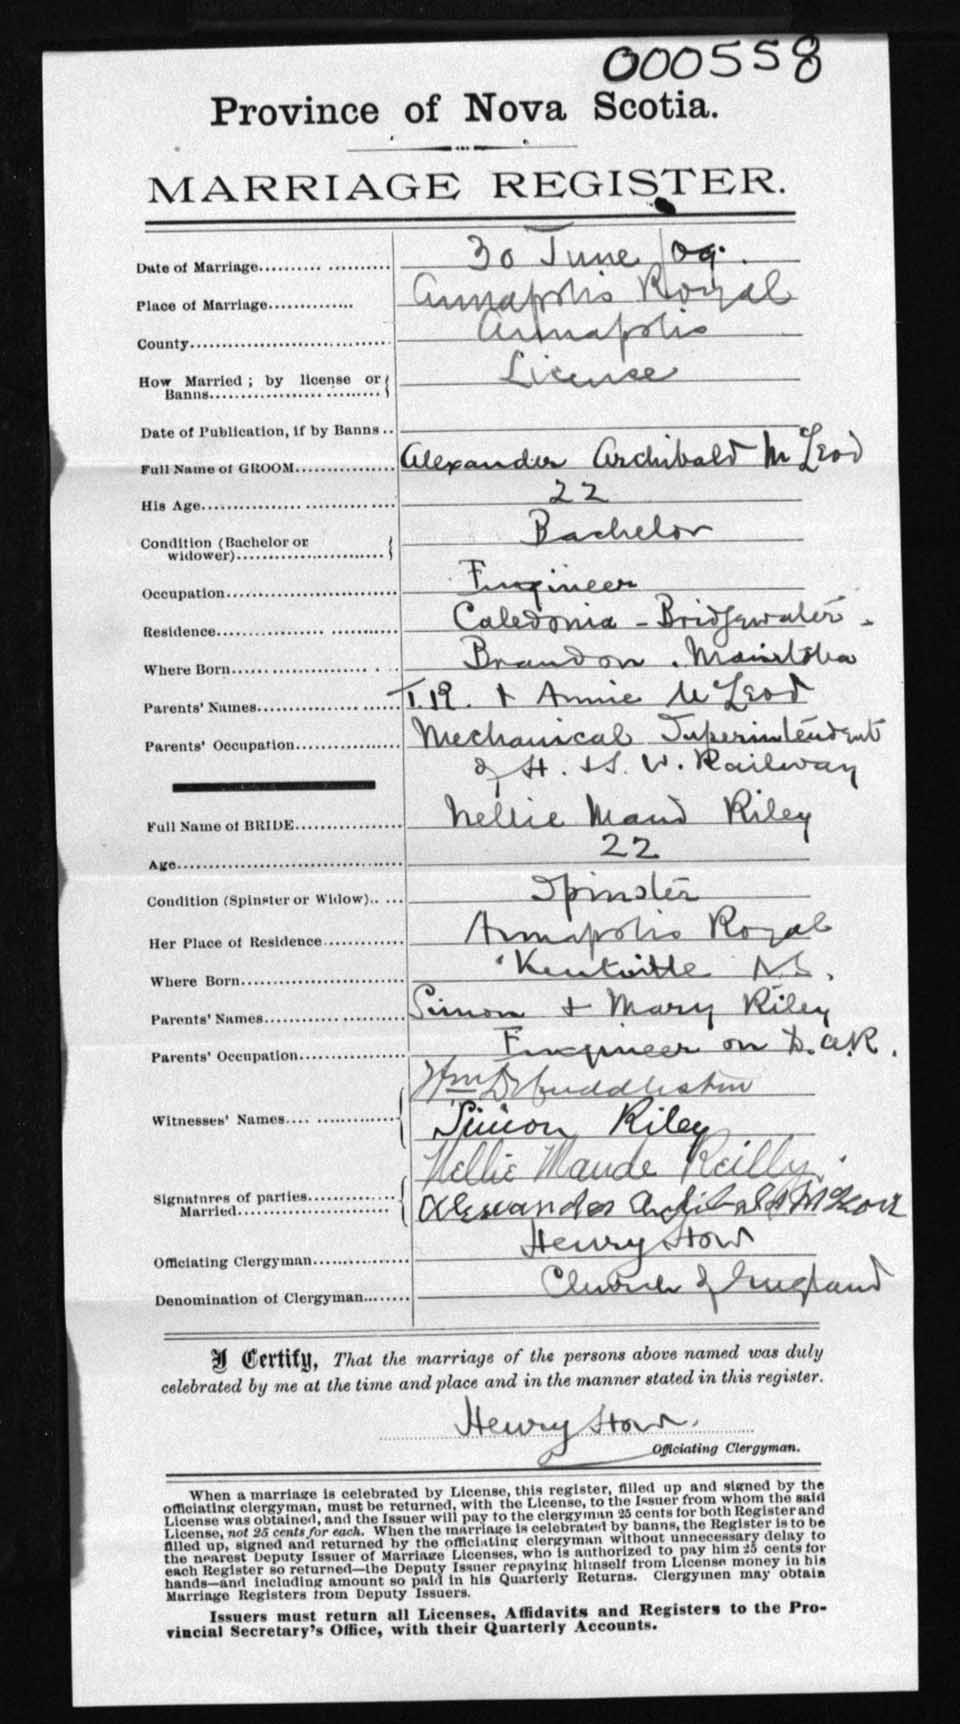 000558
Province of Nova Scotia.
MARRIAGE REGISTER.
Date of Marriage.......... 30 June /09.
Place of Marriage............. Annapolis Royal
County.............................. Annapolis
How Married ; by license or Banns.............................. License
Date of Publication, if by Banns ..
Full Name of GROOM............... Alexander Archibald McLeod
His Age............................. 22
Condition (Bachelor or widower)........................ Bachelor
Occupation............................ Engineer
Residence............................ Caledonia - Bridgewater.
Where Born........................ Brandon . Manitoba
Parents' Names...................... T.R. + Annie McLeod
Parents' Occupation.................. Mechanical Superintendent
of H. + S. W. Railway
Full Name of BRIDE................ Nellie Maud Riley
Age.................................... 22
Condition (Spinster or Widow)..... Spinster
Her Place of Residence............ Annapolis Royal
Where Born........................ Kentville N.S.
Parents' Names..................... Simon + Mary Riley
Parents' Occupation............... Engineer on D.A.R.
Witnesses' Names.................. Wm
Simon Riley
Nellie Maude Reilly.
Signatures of parties Married......................... Alexander Archibald McLeod
Officiating Clergyman............... Henry How
Denomination of Clergyman........ Church of England
I Certify, That the marriage of the persons above named was duly
celebrated by me at the time and place and in the manner stated in this register.
Henry How.
Officiating Clergyman.
When a marriage is celebrated by License, this register, filled up and signed by the
officiating clergyman, must be returned, with the License, to the Issuer from whom the said
License was obtained, and the Issuer will pay to the clergyman 25 cents for both Register and
License, not 25 cents for each. When the marriage is celebrated by banns, the Register is to be
filled up, signed and returned by the officiating clergyman without unnecessary delay to
the nearest Deputy Issuer of Marriage Licenses, who is authorized to pay him 25 cents for
each Register so returned—the Deputy Issuer repaying himself from License money in his
hands—and including amount so paid in his Quarterly Returns. Clergymen may obtain
Marriage Registers from Deputy Issuers.
Issuers must return all Licenses, Affidavits and Registers to the Pro-
vincial Secretary's Office, with their Quarterly Accounts.